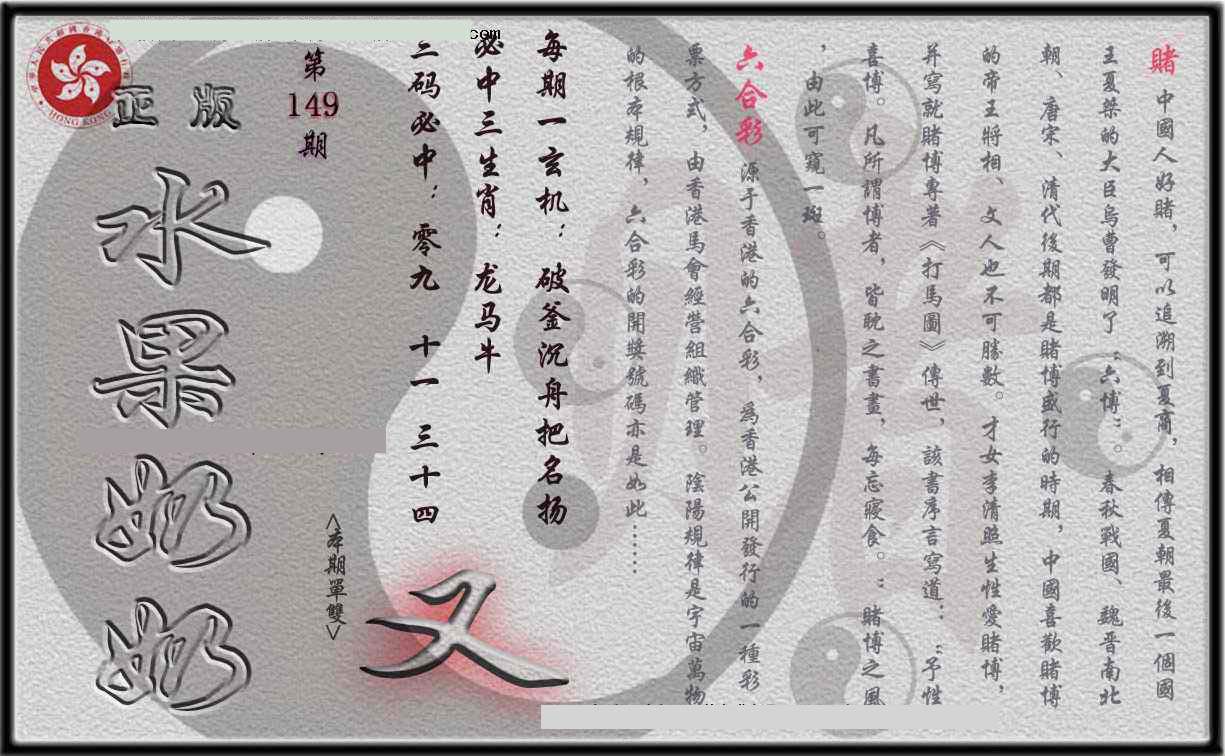 賭 中國人好賭，可以追溯到夏商，相傳夏朝最後一個國
王夏桀的大臣烏曹發明了“六博”。春秋戰國、魏晋南北
朝、唐宋、清代後期都是賭博盛行的時期，中國喜歡賭博
的帝王將相、文人也不可勝數。才女李清照生性愛賭博，
并寫就賭博專著《打馬圖》傳世，該書序言寫道：“予性
喜博。凡所謂博者，皆耽之書晝，每忘寢食。”賭博之風
，由此可窺一斑。
六合彩 源于香港的六合彩，爲香港公開發行的一種彩
票方式，由香港馬會經營組織管理。陰陽規律是宇宙萬物
的根本規律，六合彩的開獎號碼亦是如此……
每期一玄机：破釜沉舟把名扬
必中三生肖：龙马牛
三码必中：零九 十一 三十四
第
149
期
<本期單雙>
又
正版
水果奶奶
HONG KONG
com